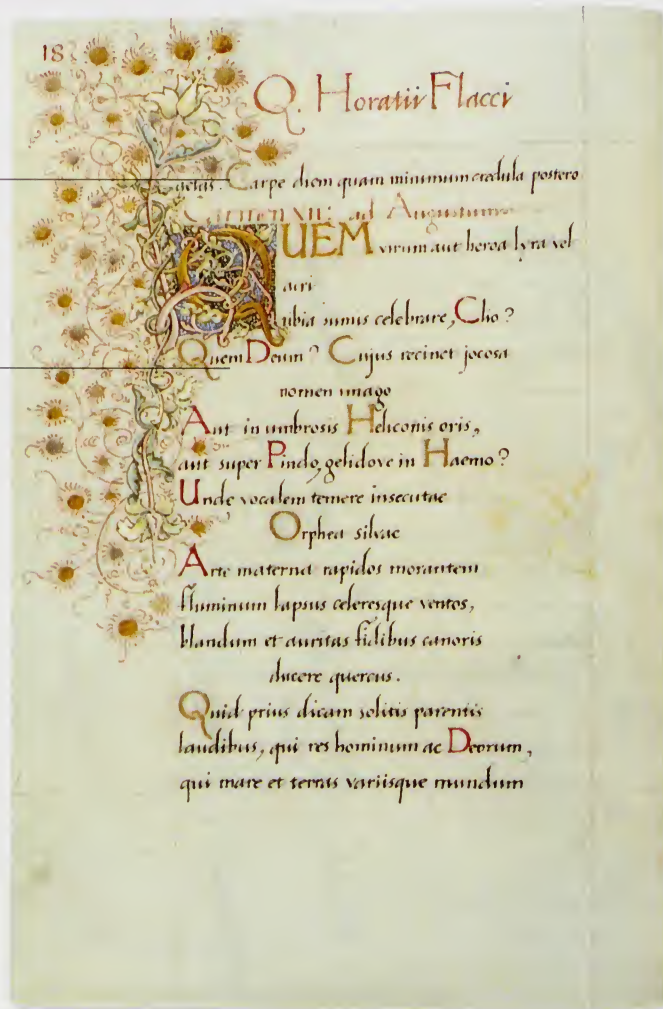 18
Q. Horatii Flacci
aetas. Carpe diem quam minimum credula postero
Carmen XII. ad Augustum
QUEM virum aut heroa lyra vel
acri
tibia sumis celebrare, Clio?
Quem Deum? Cujus recinet jocosa
nomen imago
Aut in umbrosis Heliconis oris,
aut super Pindo, gelidove in Haemo?
Unde vocalem temere insecutae
Orphea silvae
Arte materna rapidos morantem
fluminum lapsus celeresque ventos,
blandum et auritas fidibus canoris
ducere quercus.
Quid prius dicam solitis parentis
laudibus, qui res hominum ac Deorum,
qui mare et terras variisque mundum